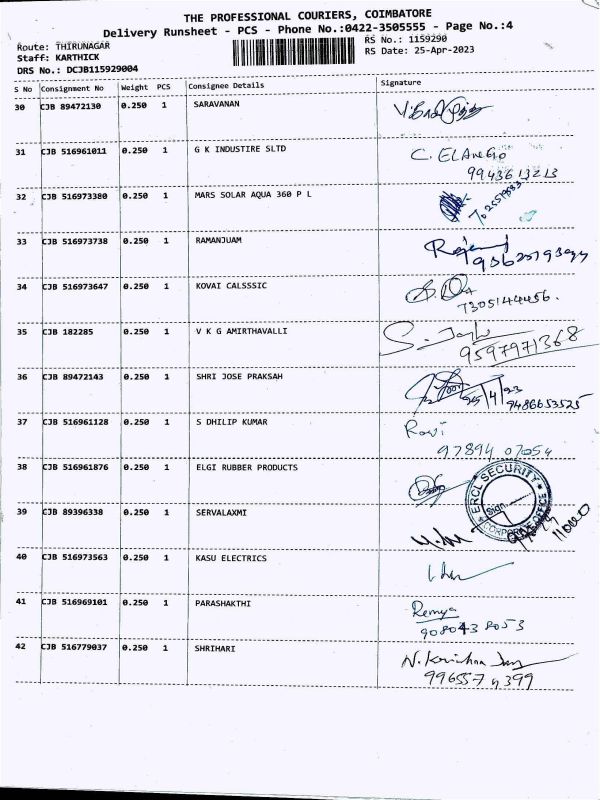 THE PROFESSIONAL COURIERS, COIMBATORE
Delivery Runsheet - PCS - Phone No.:0422-3505555 - Page No.:4
Route: THIRUNAGAR RS No.: 1159290
Staff: KARTHICK RS Date: 25-Apr-2023
DRS No.: DCJB115929004
S No Consignment No Weight PCS Consignee Details Signature
30 CJB 89472130 0.250 1 SARAVANAN
31 CJB 516961011 0.250 1 G K INDUSTIRE SLTD C. ELANGO
9943613213
32 CJB 516973380 0.250 1 MARS SOLAR AQUA 360 P L
33 CJB 516973738 0.250 1 RAMANJUAM
34 CJB 516973647 0.250 1 KOVAI CALSSSIC
7305144456.
35 CJB 182285 0.250 1 V K G AMIRTHAVALLI
9597971368
36 CJB 89472143 0.250 1 SHRI JOSE PRAKSAH
25/4/23
9486653525
37 CJB 516961128 0.250 1 S DHILIP KUMAR Ravi
97894 07054
38 CJB 516961876 0.250 1 ELGI RUBBER PRODUCTS
ERCL SECURITY
Sign
CORPORATE OFFICE
39 CJB 89396338 0.250 1 SERVALAXMI
40 CJB 516973563 0.250 1 KASU ELECTRICS
41 CJB 516969101 0.250 1 PARASHAKTHI Remya
908043 8053
42 CJB 516779037 0.250 1 SHRIHARI N. Krishna